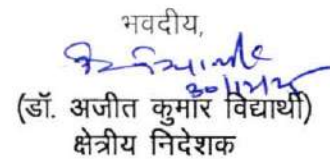 भवदीय,
30/12/25
(डॉ. अजीत कुमार विद्यार्थी)
क्षेत्रीय निदेशक